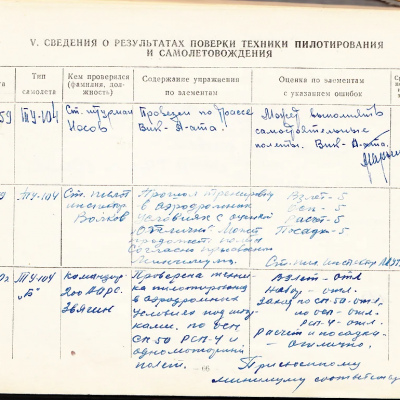 V. СВЕДЕНИЯ О РЕЗУЛЬТАТАХ ПОВЕРКИ ТЕХНИКИ ПИЛОТИРОВАНИЯ
И САМОЛЕТОВОЖДЕНИЯ
Тип
самолета
Кем проверялся
(фамилия, дол-
жность)
Содержание упражнения
по элементам
Оценка по элементам
с указанием ошибок
59
ТУ-104
Ст. штурман
Носов
Проверен по трассе
Внк - А-ата.
Может выполнять
самостоятельные
полеты. Внк - А-ата.
ТУ-104
Ст. пилот
инструктор
Волков
Прошел тренировку
в аэродромных
условиях с оценкой
Отлично. Может
продолжать полеты
согласно присвоен.
минимуму.
Взлет - 5
Расчет - 5
Посадка - 5
ТУ-104
„Б"
Командир
200 ЛАРС.
Звягин
Проверена техни-
ка пилотирования
в аэродромных
условиях под што-
рками. по ОСП
СП-50 РСП-4 и
одномоторный
полет.
Взлет - отл.
Набор - отл.
Заход по СП-50 - отл.
по осп - отл.
РСП-4 - отл.
Расчет и посадка -
отлично.
Присвоенному
минимуму соответству
66